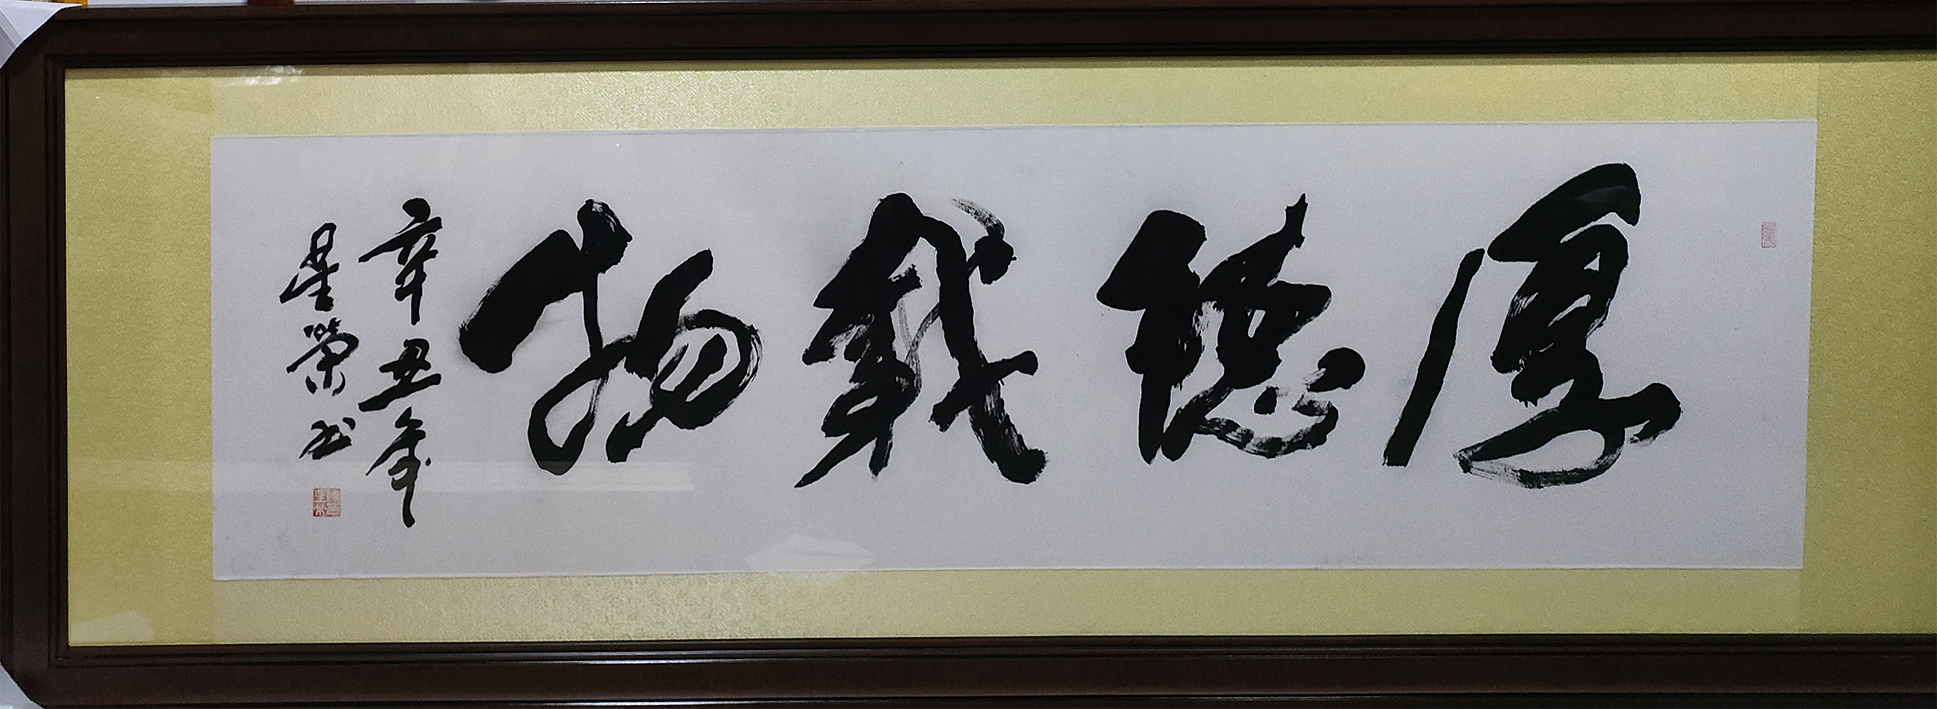 厚德載物
辛丑年
星榮书